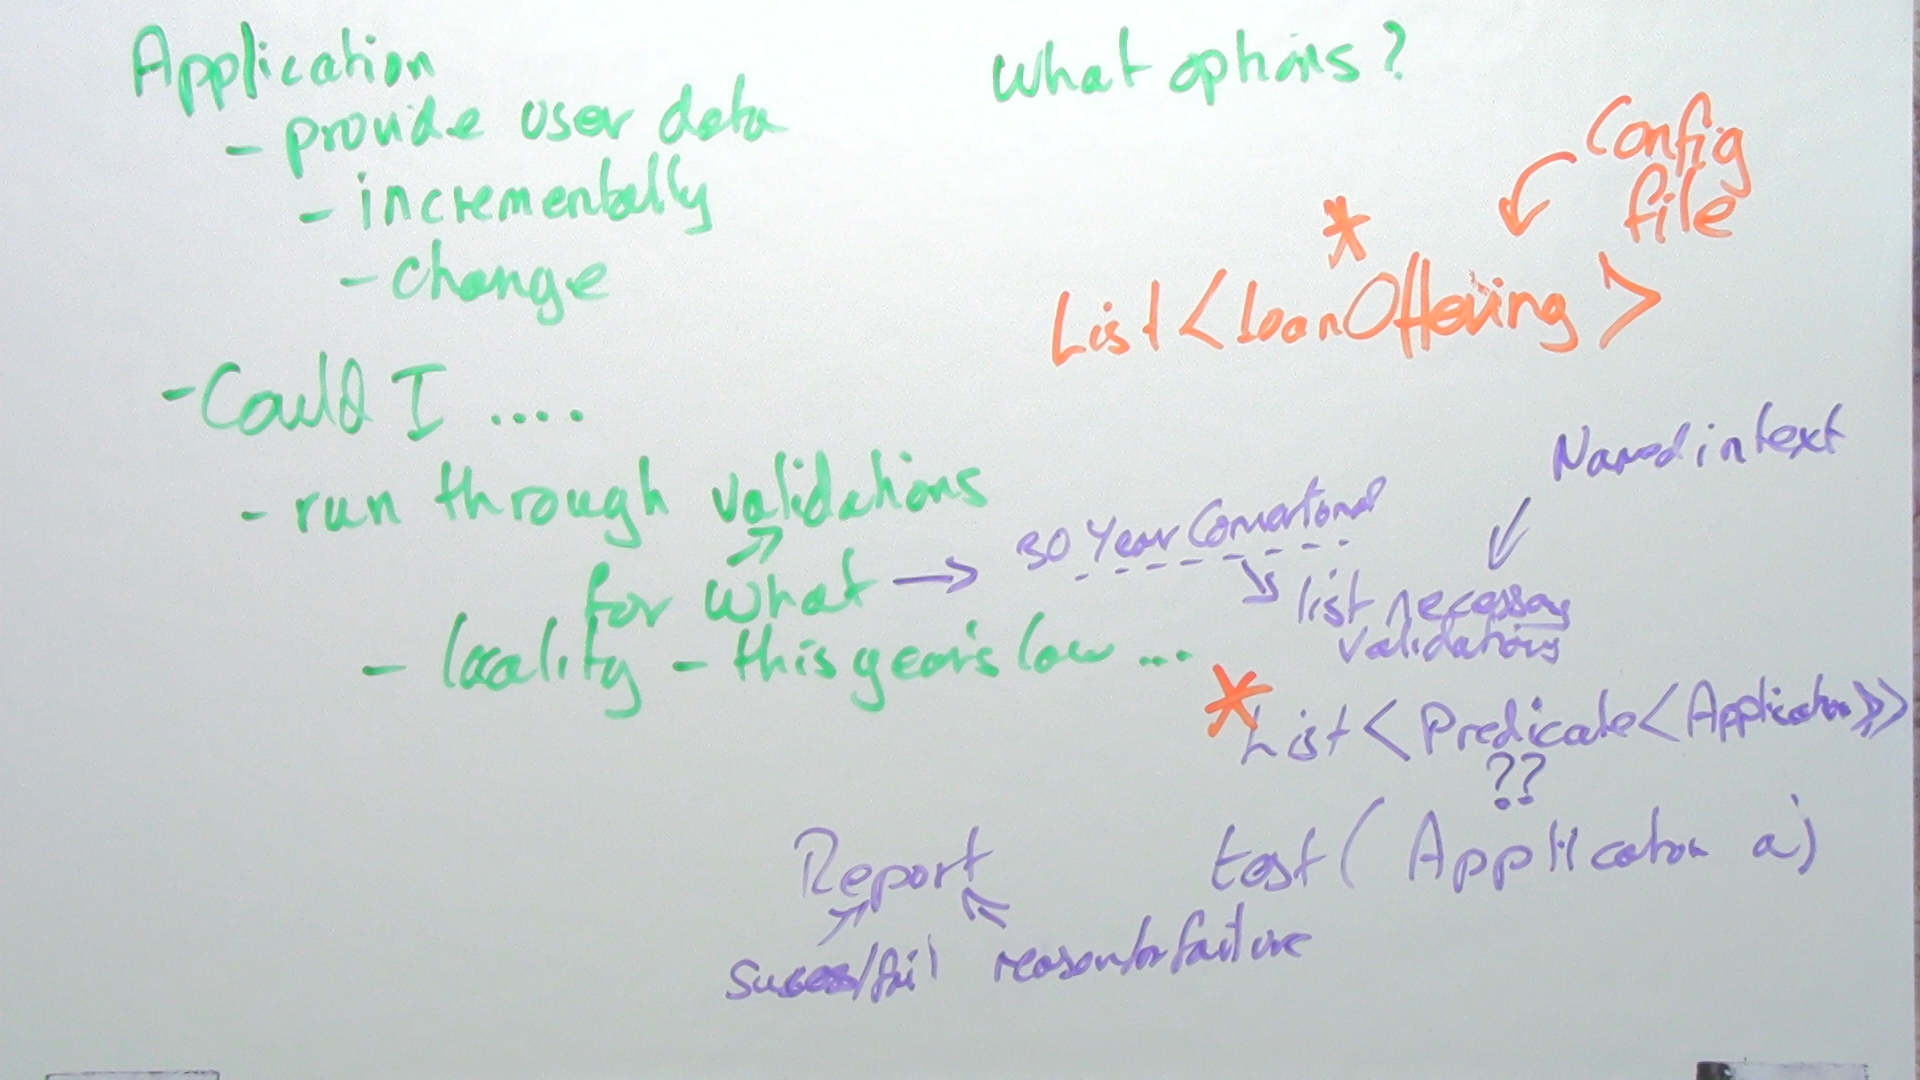 Application
- provide user data
- incrementally
- change
- Could I ....
- run through validations
for what
- locality - this year's law ...
What options?
Config
file
*
List<LoanOffering>
Named in text
30 Year Conventional
list necessary
validations
* List<Predicate<Application>>
??
test(Application a)
Report
success/fail reason for failure